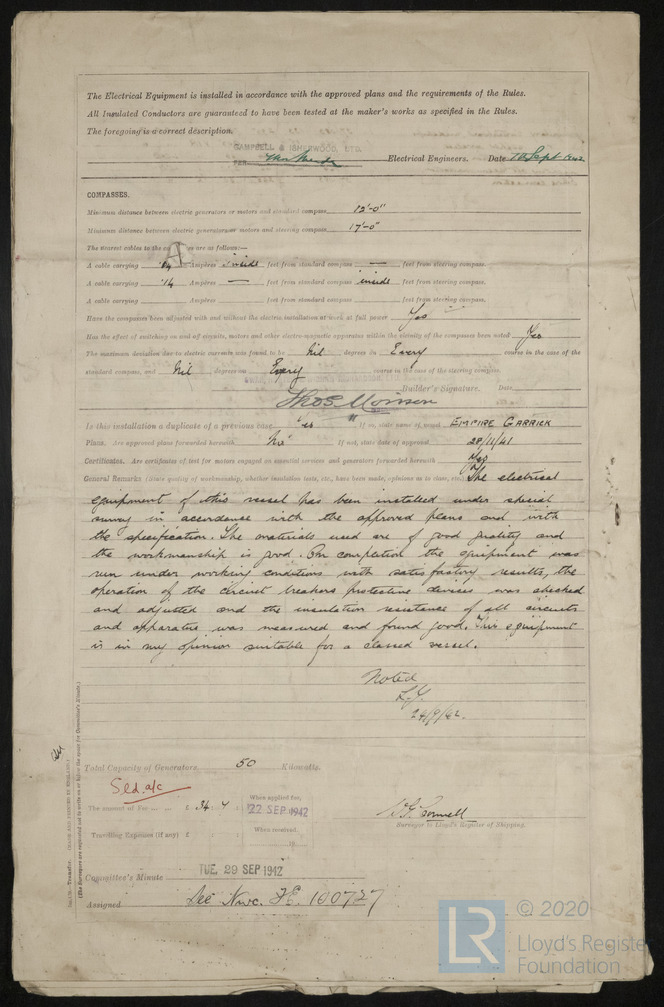 The Electrical Equipment is installed in accordance with the approved plans and the requirements of the Rules.
All Insulated Conductors are guaranteed to have been tested at the maker's works as specified in the Rules.
The foregoing is a correct description.
CAMPBELL & ISHERWOOD, LTD.
Electrical Engineers. Date 7th Sept 1942
COMPASSES.
Minimum distance between electric generators or motors and standard compass 12'-0"
Minimum distance between electric generators or motors and steering compass 17'-0"
The nearest cables to the compasses are as follows:—
A cable carrying .14 Ampères inside feet from standard compass — feet from steering compass.
A cable carrying .14 Ampères — feet from standard compass inside feet from steering compass.
A cable carrying Ampères feet from standard compass feet from steering compass.
Have the compasses been adjusted with and without the electric installation at work at full power Yes
Has the effect of switching on and off circuits, motors and other electro-magnetic apparatus within the vicinity of the compasses been noted Yes
The maximum deviation due to electric currents was found to be Nil degrees on Every course in the case of the
standard compass, and Nil degrees on Every course in the case of the steering compass.
Builder's Signature. Date
Is this installation a duplicate of a previous case Yes If so, state name of vessel EMPIRE GARRICK
Plans. Are approved plans forwarded herewith No If not, state date of approval 28/11/41
Certificates. Are certificates of test for motors engaged on essential services and generators forwarded herewith Yes
General Remarks (State quality of workmanship, whether insulation tests, etc., have been made, opinions as to class, etc.) The electrical
equipment of this vessel has been installed under special
survey in accordance with the approved plans and with
the specification. The materials used are of good quality and
the workmanship is good. On completion the equipment was
run under working conditions with satisfactory results, the
operation of the circuit breakers protective devices was checked
and adjusted and the insulation resistance of all circuits
and apparatus was measured and found good. This equipment
is in my opinion suitable for a classed vessel.
Noted
24/9/42.
Total Capacity of Generators 50 Kilowatts.
S.l.d. a/c
The amount of Fee £ 34 : 4 :
When applied for,
22 SEP 1942
Travelling Expenses (if any) £ : :
When received,
19
Surveyor to Lloyd's Register of Shipping.
Committee's Minute TUE. 29 SEP 1942
Assigned See Nwc. F.E. 100727
LR
© 2020
Lloyd's Register
Foundation